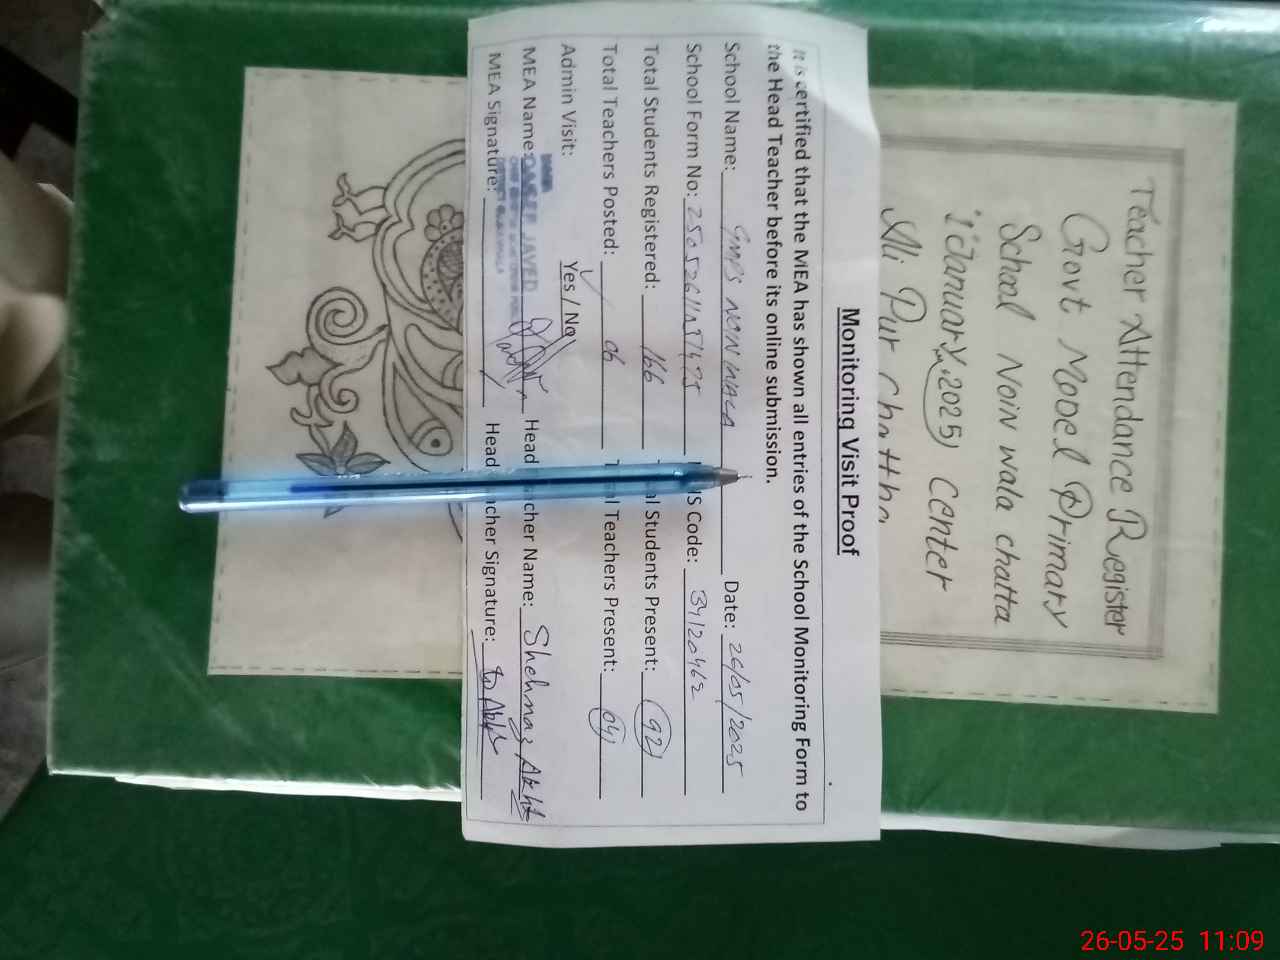 Teacher Attendance Register
Govt Model Primary
School Noin wala chatta
Center
Ali Pur Chattha
Monitoring Visit Proof
It is certified that the MEA has shown all entries of the School Monitoring Form to
the Head Teacher before its online submission.
School Name: GMPS NOIN WALA Date: 26/05/2025
School Form No: Code: 34120462
Total Students Registered: 166 Students Present: 92
Total Teachers Posted: 06 Teachers Present: 04
Admin Visit: Yes / No
MEA Name: JAVED Head Name: Shehnaz Akht
MEA Signature: Head Signature:
26-05-25 11:09